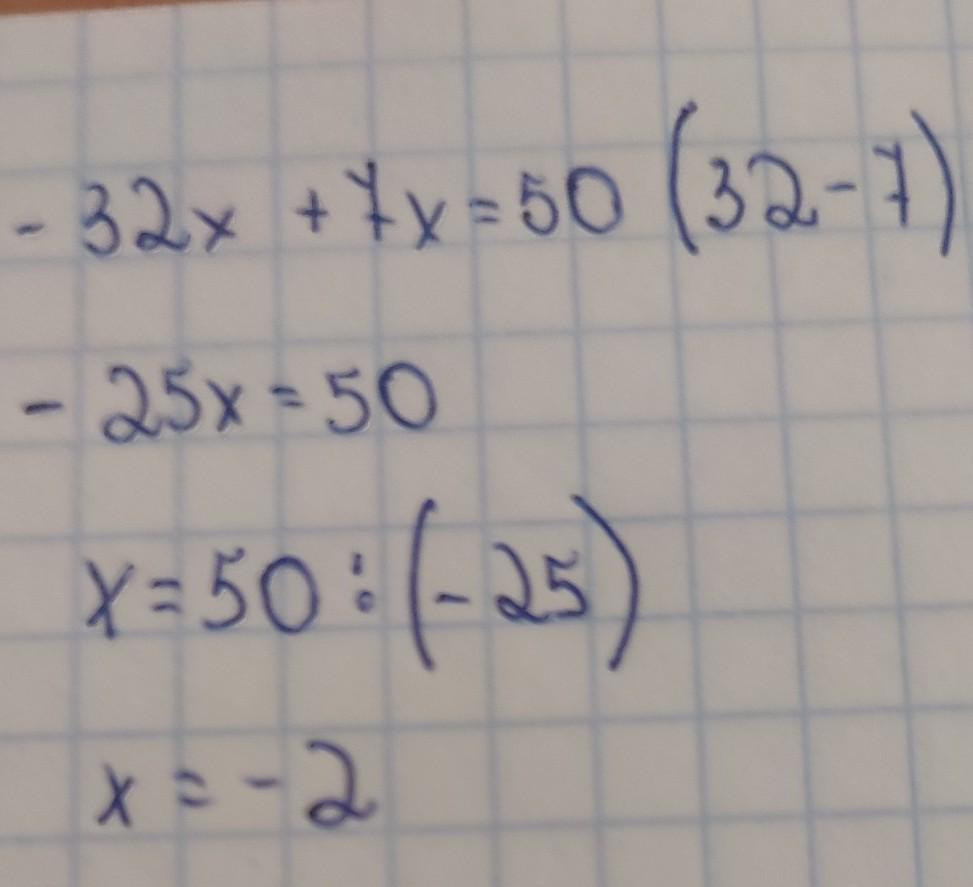 - 32x + 7x = 50 (32 - 7)
- 25x = 50
x = 50 : (- 25)
x = - 2